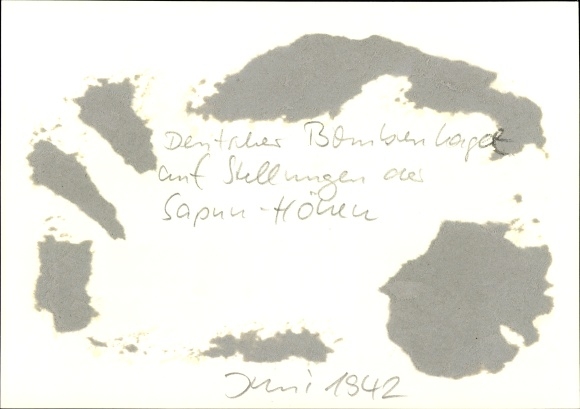 Deutscher Bombenhagel
auf Stellungen der
Sapun-Höhen
Juni 1942